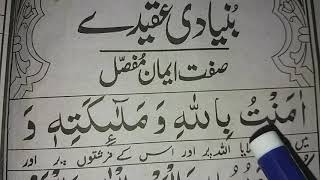 بُنیادی عقیدے
صفت ایمان مُفصّل
اٰمَنْتُ بِاللهِ وَ مَلٰٓئِكَتِهٖ وَ
میں یا اللہ پر اور اس کے فرشتوں پر اور